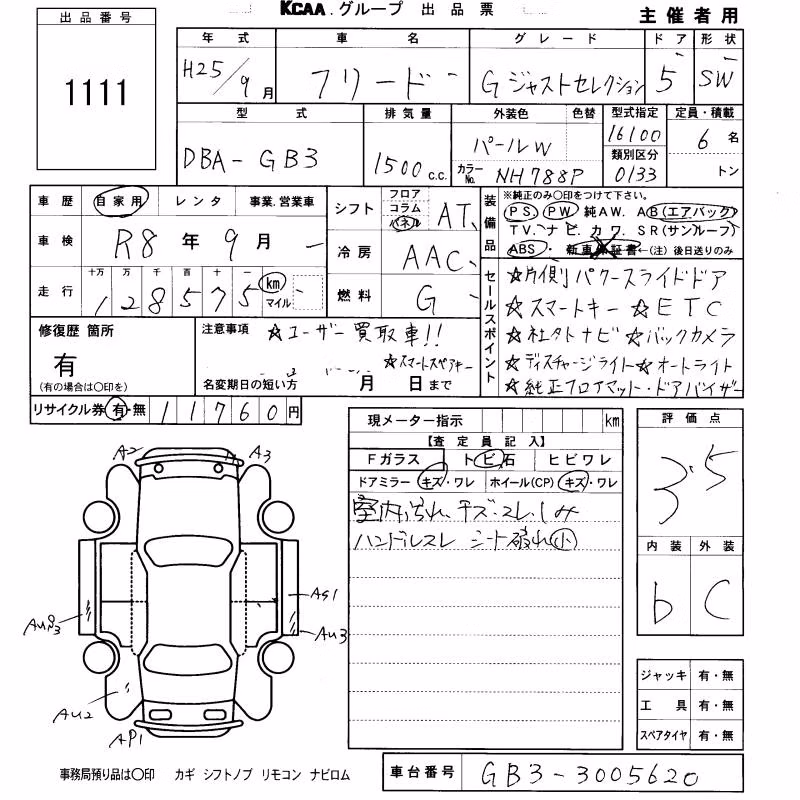 KCAA.グループ 出品票
主催者用
出品番号
1111
年式 車名 グレード ドア 形状
H25/9月 フリード G ジャストセレクション 5 SW
型式 排気量 外装色 色替 型式指定 定員・積載
DBA-GB3 1500c.c. パールW 16100 6名
カラーNo. NH788P 類別区分 0133 トン
車歴 自家用 レンタ 事業.営業車
車検 R8年9月
走行 十万 万 千 百 十
128575 km マイル
シフト フロア コラム パネル AT
冷房 AAC
燃料 G
装備品
※純正のみ〇印をつけて下さい。
PS PW 純AW. AB(エアバック)
TV. ナビ. カワ. SR(サンルーフ)
ABS・ 新車保証書←(注)後日送りのみ
セールスポイント
☆片側パワースライドドア
☆スマートキー ☆ETC
☆社外ナビ ☆バックカメラ
☆ディスチャージライト ☆オートライト
☆純正フロアマット・ドアバイザー
修復歴 箇所
有
(有の場合は〇印を)
注意事項 ☆ユーザー買取車!!
☆スマートスペアキー
名変期日の短い方 月 日まで
リサイクル券 有・無 11760円
現メーター指示 km
【査定員記入】
Fガラス トビ石 ヒビワレ
ドアミラー キズ・ワレ ホイール(CP) キズ・ワレ
室内汚れ、キズ・スレ、しみ
ハンドルスレ シート破れ小
評価点
3.5
内装 外装
b C
A2 A3
AS1
AU3
AU2
AP1
ジャッキ 有・無
工具 有・無
スペアタイヤ 有・無
事務局預り品は〇印 カギ シフトノブ リモコン ナビロム
車台番号 GB3-3005620